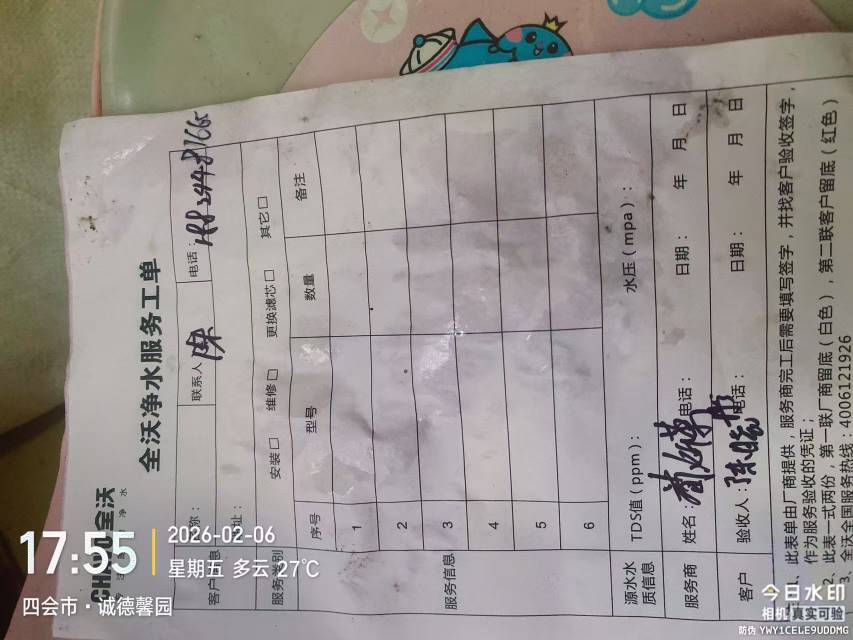 CHIWO全沃
专注健康净水
全沃净水服务工单
客户信息
名称：
联系人
陈
电话：
地址：
服务类别
安装□ 维修□ 更换滤芯□ 其它□
服务信息
序号 型号 数量 备注
1
2
3
4
5
6
源水水质信息
TDS值（ppm）： 水压（mpa）：
服务商 姓名： 电话： 日期： 年 月 日
客户 验收人：陈晓 电话： 日期： 年 月 日
1、此表单由厂商提供，服务商完工后需要填写签字，并找客户验收签字，
作为服务验收的凭证；
2、此表一式两份，第一联厂商留底（白色），第二联客户留底（红色）
3、全沃全国服务热线：4006121926
17:55
2026-02-06
星期五 多云 27℃
四会市·诚德馨园
今日水印
相机 真实可验
防伪 YWY1CELE9UDDMG